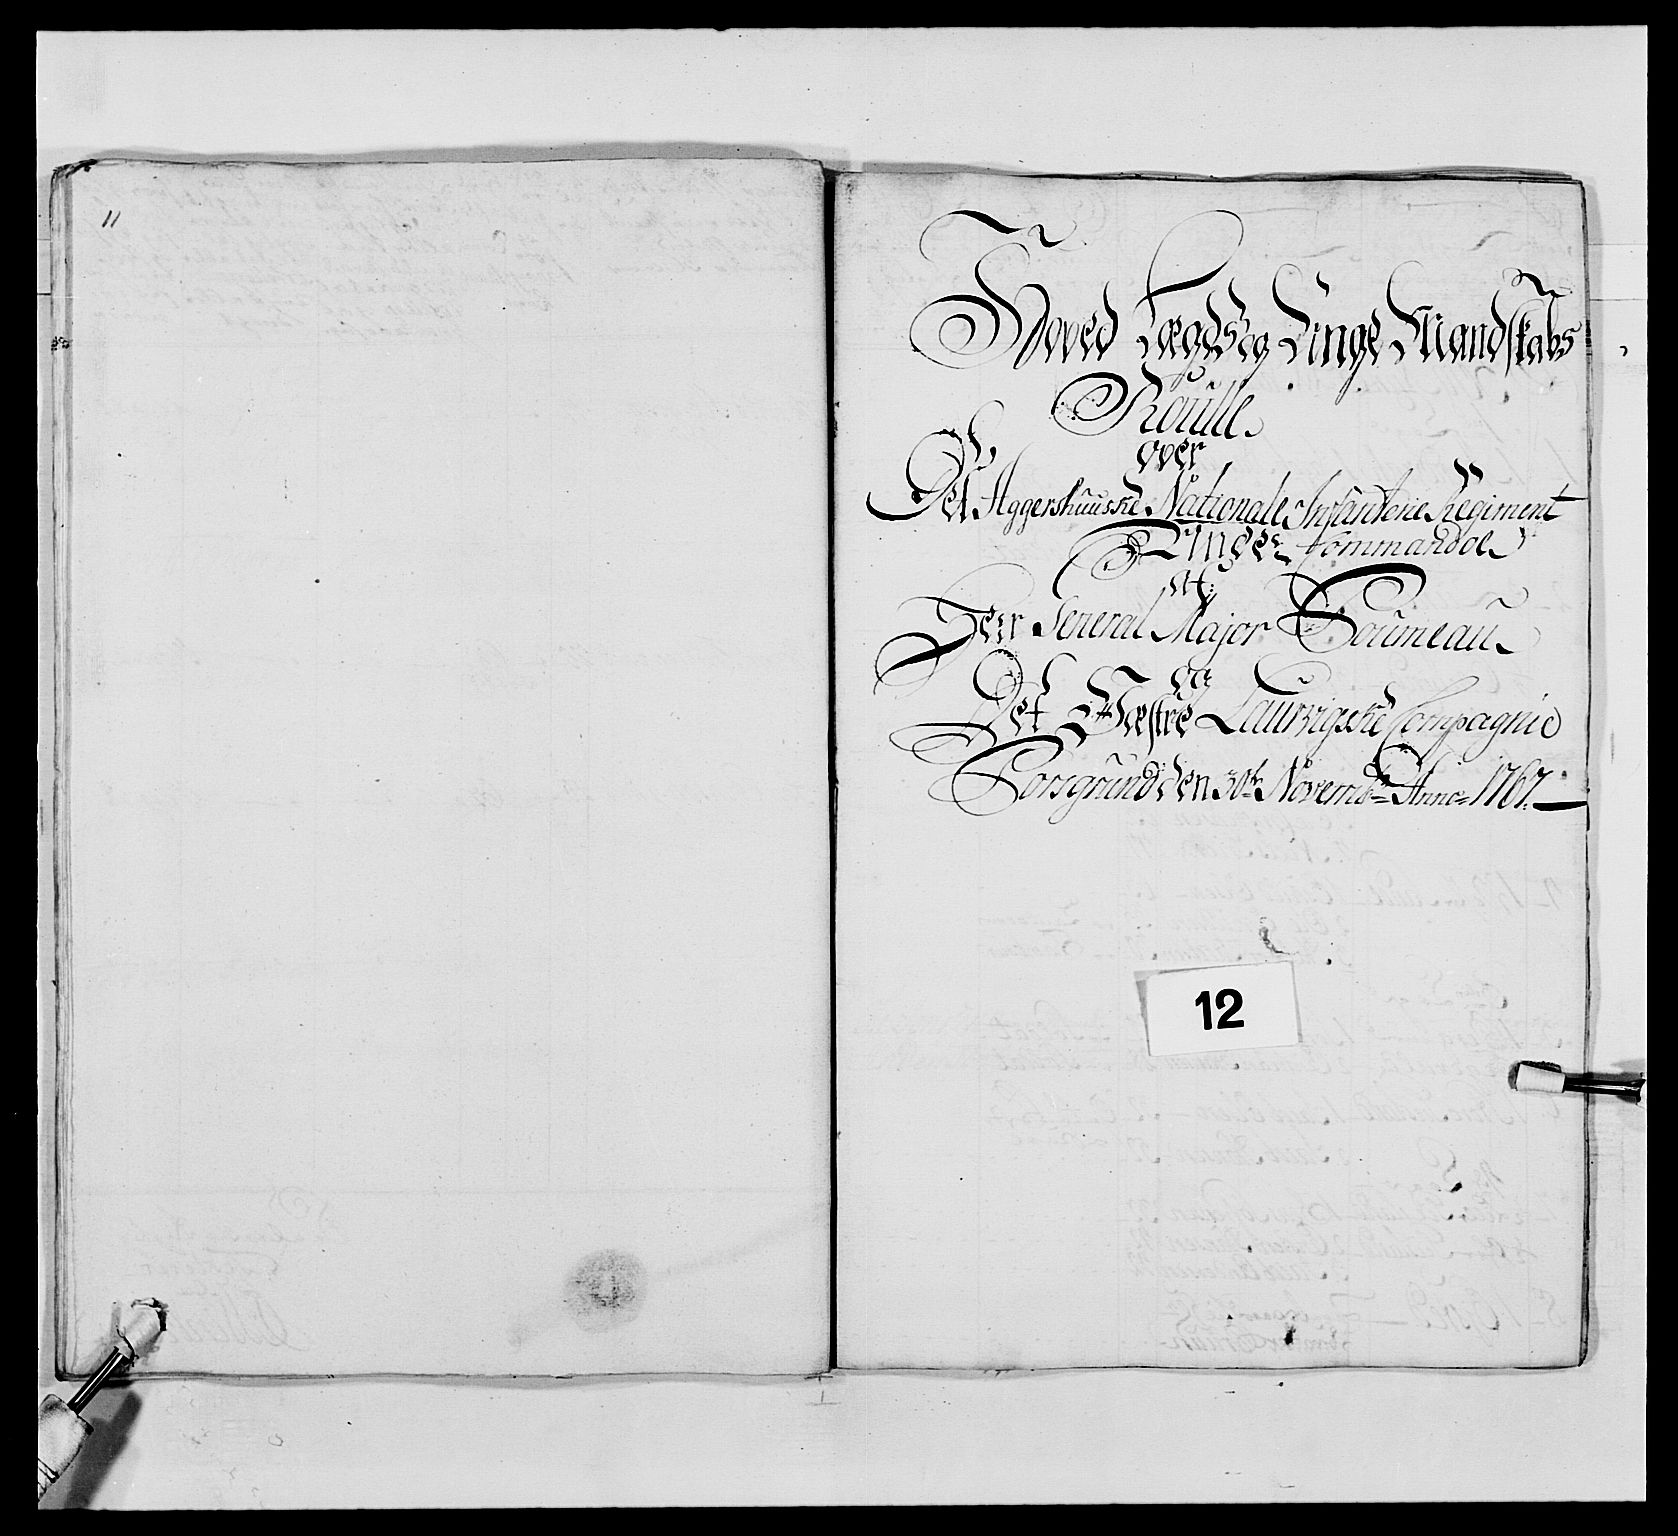 11
Hoved Lægds og Unge Mandskabs
Roulle
over
Det Aggershuuske Nationale Infanterie Regiment
Under Commando
af
Herr General Major Soumeau
og
Det Westre Laurvigske Compagnie
Porsgrund den 30te Novemb: Anno 1767.
12